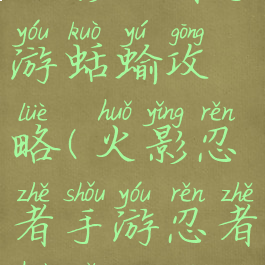 yóu kuò yú gōng
游蛞蝓攻
lüè huǒ yǐng rěn
略(火影忍
zhě shǒu yóu rěn zhě
者手游忍者